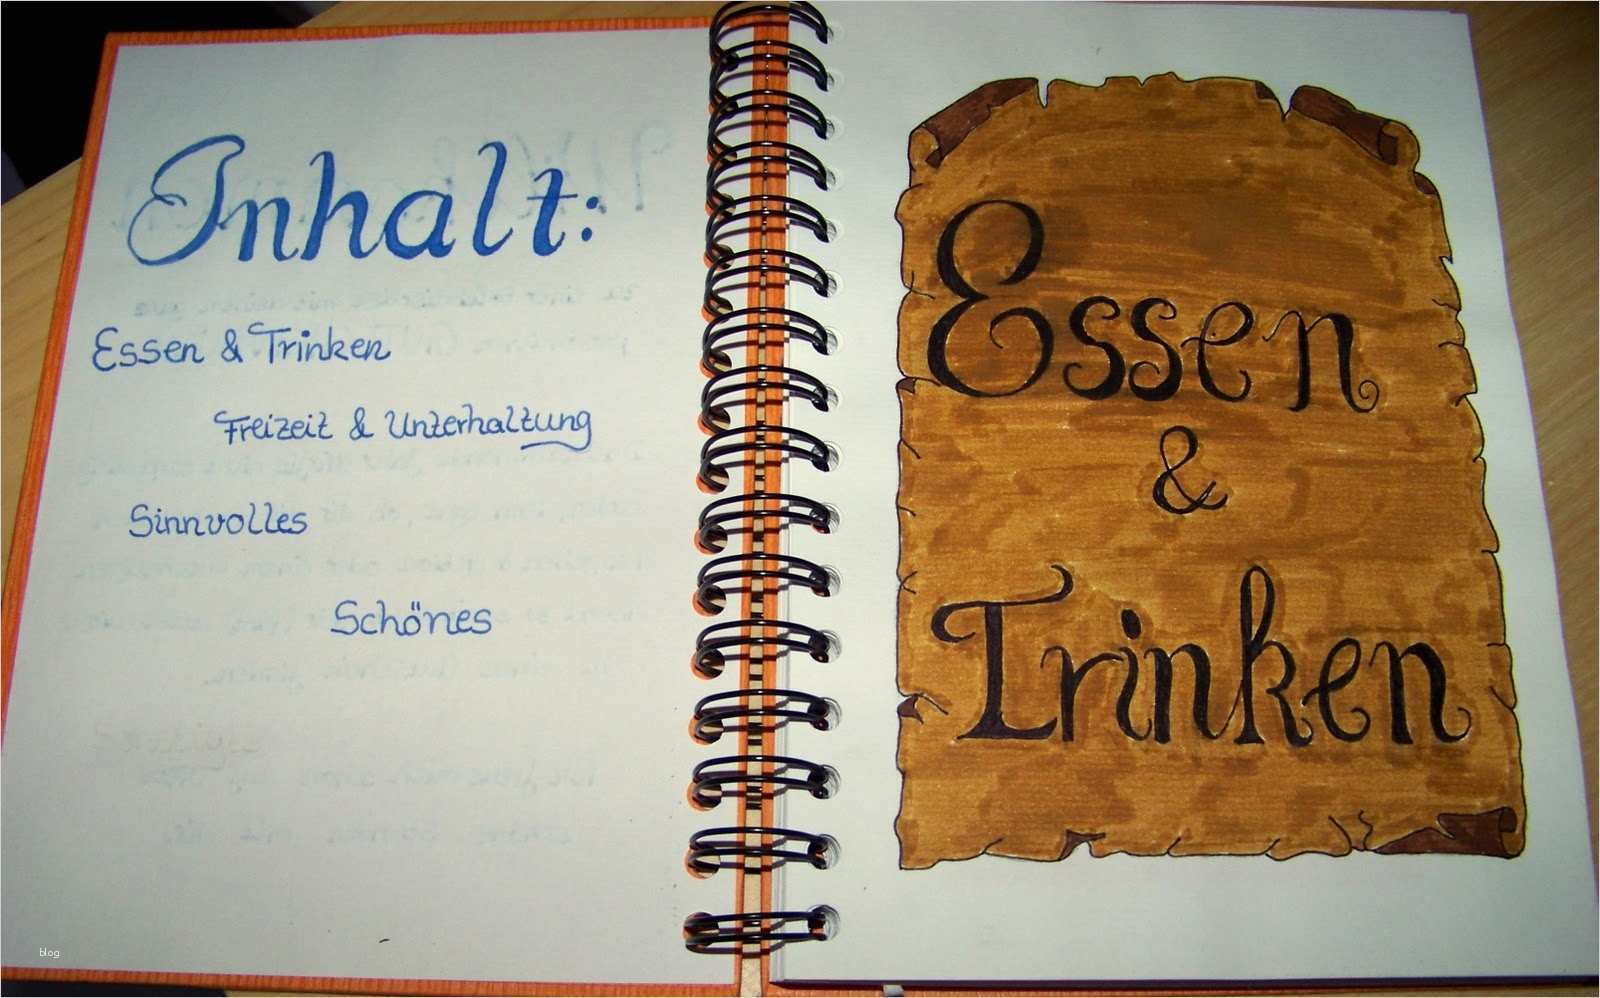 Inhalt:
Essen & Trinken
Freizeit & Unterhaltung
Sinnvolles
Schönes
blog
Essen
&
Trinken